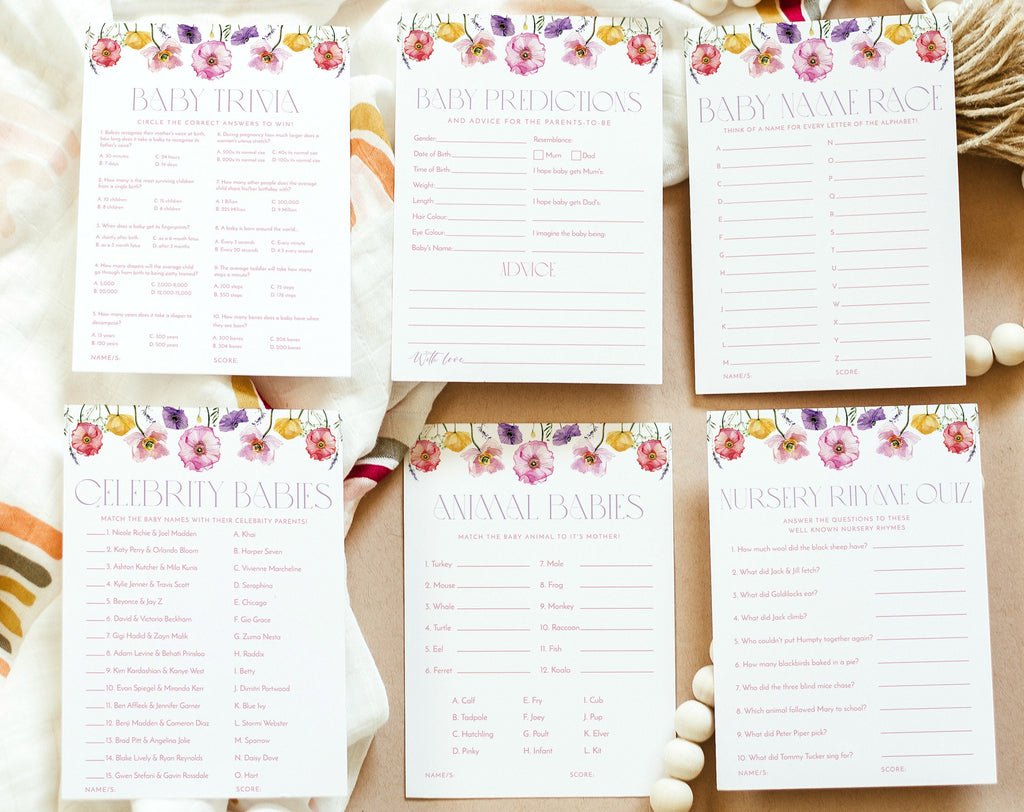 BABY TRIVIA
CIRCLE THE CORRECT ANSWERS TO WIN!
1. Babies recognise their mother's voice at birth,
how long does it take a baby to recognise its
father's voice?
A. 30 minutes C. 24 hours
B. 7 days D. 14 days
2. How many is the most surviving children
from a single birth?
A. 10 children C. 15 children
B. 8 children D. 6 children
3. When does a baby get its fingerprints?
A. shortly after birth C. as a 6 month fetus
B. as a 3 month fetus D. after 3 months
4. How many diapers will the average child
go through from birth to being potty trained?
A. 5,000 C. 7,000-8,000
B. 20,000 D. 12,000-15,000
5. How many years does it take a diaper to
decompose?
A. 15 years C. 300 years
B. 150 years D. 500 years
NAME/S:
6. During pregnancy how much larger does a
women's uterus stretch?
A. 500x to normal size C. 60x to normal size
B. 200x to normal size D. 100x to normal size
7. How many other people does the average
child share his/her birthday with?
A. 1 Billion C. 300,000
B. 225 Million D. 9 Million
8. A baby is born around the world...
A. Every 3 seconds C. Every minute
B. Every 20 seconds D. 4.5 every second
9. The average toddler will take how many
steps a minute?
A. 100 steps C. 75 steps
B. 250 steps D. 176 steps
10. How many bones does a baby have when
they are born?
A. 300 bones C. 206 bones
B. 306 bones D. 200 bones
SCORE:
BABY PREDICTIONS
AND ADVICE FOR THE PARENTS-TO-BE
Gender:
Date of Birth:
Time of Birth:
Weight:
Length
Hair Colour:
Eye Colour:
Baby's Name:
Resemblance:
Mum Dad
I hope baby gets Mum's:
I hope baby gets Dad's:
I imagine the baby being:
ADVICE
With love
BABY NAME RACE
THINK OF A NAME FOR EVERY LETTER OF THE ALPHABET!
A
B
C
D
E
F
G
H
I
J
K
L
M
NAME/S:
N
O
P
Q
R
S
T
U
V
W
X
Y
Z
SCORE:
CELEBRITY BABIES
MATCH THE BABY NAMES WITH THEIR CELEBRITY PARENTS!
1. Nicole Richie & Joel Madden
2. Katy Perry & Orlando Bloom
3. Ashton Kutcher & Mila Kunis
4. Kylie Jenner & Travis Scott
5. Beyonce & Jay Z
6. David & Victoria Beckham
7. Gigi Hadid & Zayn Malik
8. Adam Levine & Behati Prinsloo
9. Kim Kardashian & Kanye West
10. Evan Spiegel & Miranda Kerr
11. Ben Affleck & Jennifer Garner
12. Benji Madden & Cameron Diaz
13. Brad Pitt & Angelina Jolie
14. Blake Lively & Ryan Reynolds
15. Gwen Stefani & Gavin Rossdale
NAME/S:
A. Khai
B. Harper Seven
C. Vivienne Marcheline
D. Seraphina
E. Chicago
F. Gio Grace
G. Zuma Nesta
H. Raddix
I. Betty
J. Dimitri Portwood
K. Blue Ivy
L. Stormi Webster
M. Sparrow
N. Daisy Dove
O. Hart
SCORE:
ANIMAL BABIES
MATCH THE BABY ANIMAL TO IT'S MOTHER!
1. Turkey
2. Mouse
3. Whale
4. Turtle
5. Eel
6. Ferret
7. Mole
8. Frog
9. Monkey
10. Raccoon
11. Fish
12. Koala
A. Calf E. Fry I. Cub
B. Tadpole F. Joey J. Pup
C. Hatchling G. Poult K. Elver
D. Pinky H. Infant L. Kit
NAME/S: SCORE:
NURSERY RHYME QUIZ
ANSWER THE QUESTIONS TO THESE
WELL KNOWN NURSERY RHYMES
1. How much wool did the black sheep have?
2. What did Jack & Jill fetch?
3. What did Goldilocks eat?
4. What did Jack climb?
5. Who couldn't put Humpty together again?
6. How many blackbirds baked in a pie?
7. Who did the three blind mice chase?
8. Which animal followed Mary to school?
9. What did Peter Piper pick?
10. What did Tommy Tucker sing for?
NAME/S: SCORE: